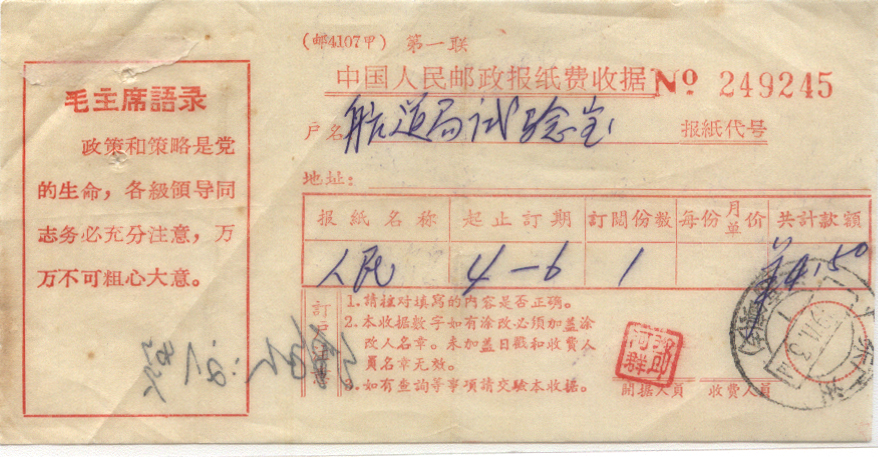 (邮4107甲) 第一联
中国人民邮政报纸费收据 No 249245
户名 航道局试验室 报紙代号
地址:
报紙名称 起止訂期 訂閱份数 每份月单价 共计款額
人民 4—6 1 ¥4.50
毛主席語录
政策和策略是党
的生命，各級領导同
志务必充分注意，万
万不可粗心大意。
訂戶
1.請核对填写的内容是否正确。
2.本收据数字如有涂改必须加盖涂
改人名章。未加盖日戳和收费人
員名章无效。
3.如有查詢等事項請交驗本收据。
開据人員 收费人員